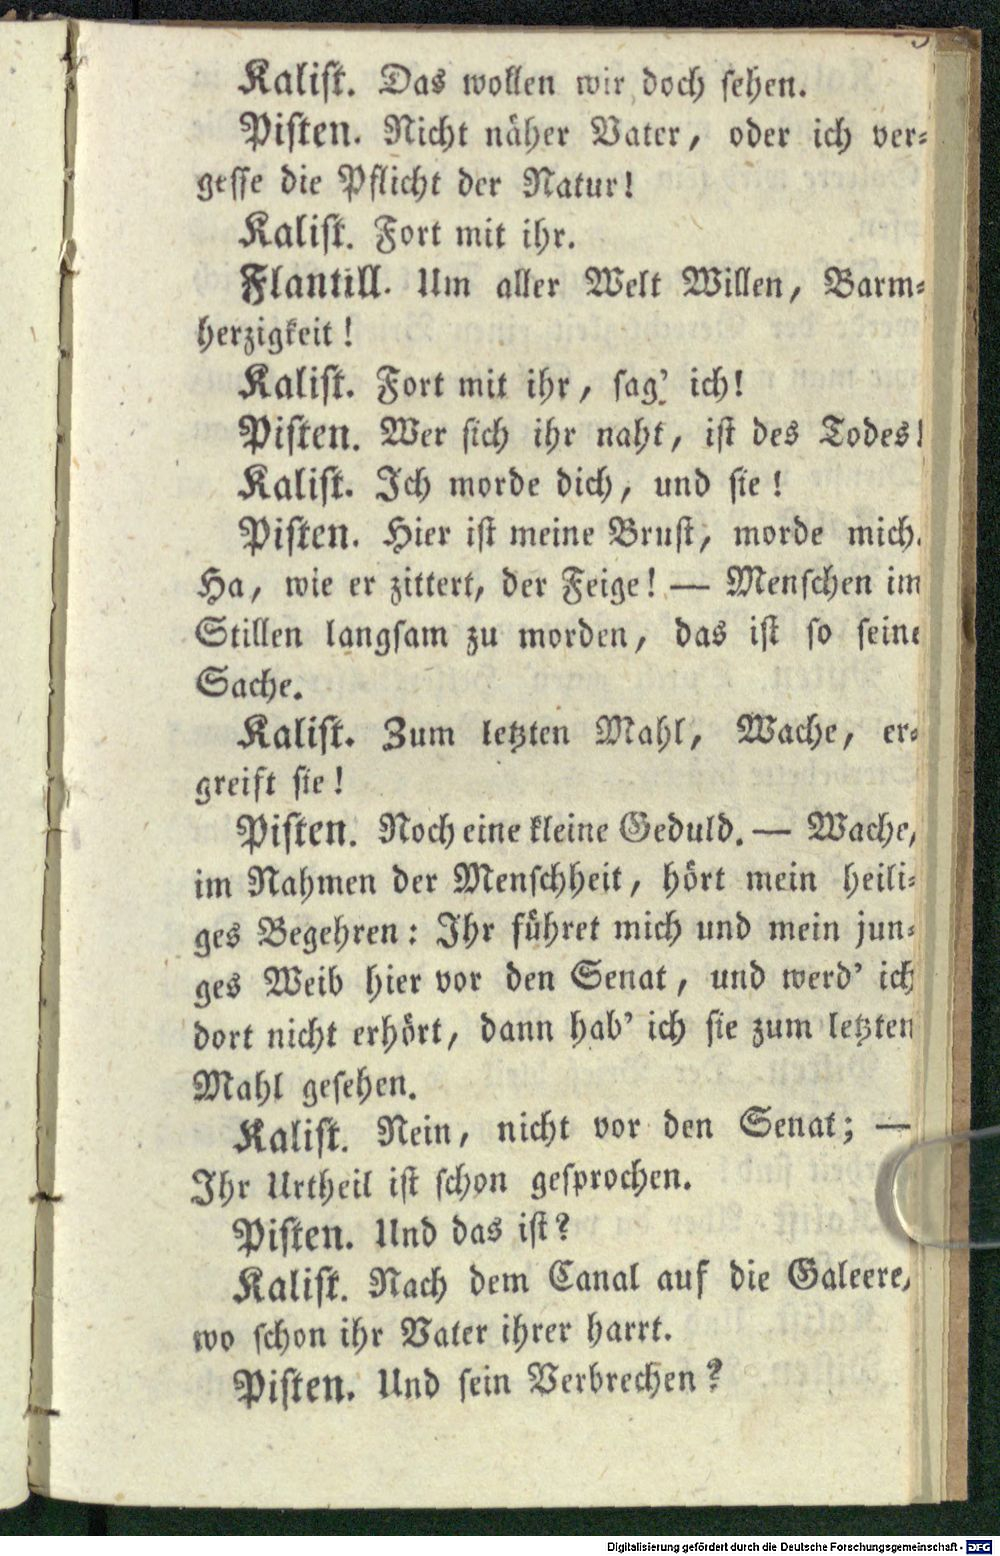 Kalist. Das wollen wir doch sehen.
Pisten. Nicht näher Vater, oder ich ver-
gesse die Pflicht der Natur!
Kalist. Fort mit ihr.
Flantill. Um aller Welt Willen, Barm-
herzigkeit!
Kalist. Fort mit ihr, sag' ich!
Pisten. Wer sich ihr naht, ist des Todes!
Kalist. Ich morde dich, und sie!
Pisten. Hier ist meine Brust, morde mich.
Ha, wie er zittert, der Feige! — Menschen im
Stillen langsam zu morden, das ist so seine
Sache.
Kalist. Zum letzten Mahl, Wache, er-
greift sie!
Pisten. Noch eine kleine Geduld. — Wache,
im Nahmen der Menschheit, hört mein heili-
ges Begehren: Ihr führet mich und mein jun-
ges Weib hier vor den Senat, und werd' ich
dort nicht erhört, dann hab' ich sie zum letzten
Mahl gesehen.
Kalist. Nein, nicht vor den Senat; —
Ihr Urtheil ist schon gesprochen.
Pisten. Und das ist?
Kalist. Nach dem Canal auf die Galeere,
wo schon ihr Vater ihrer harrt.
Pisten. Und sein Verbrechen?
Digitalisierung gefördert durch die Deutsche Forschungsgemeinschaft - DFG